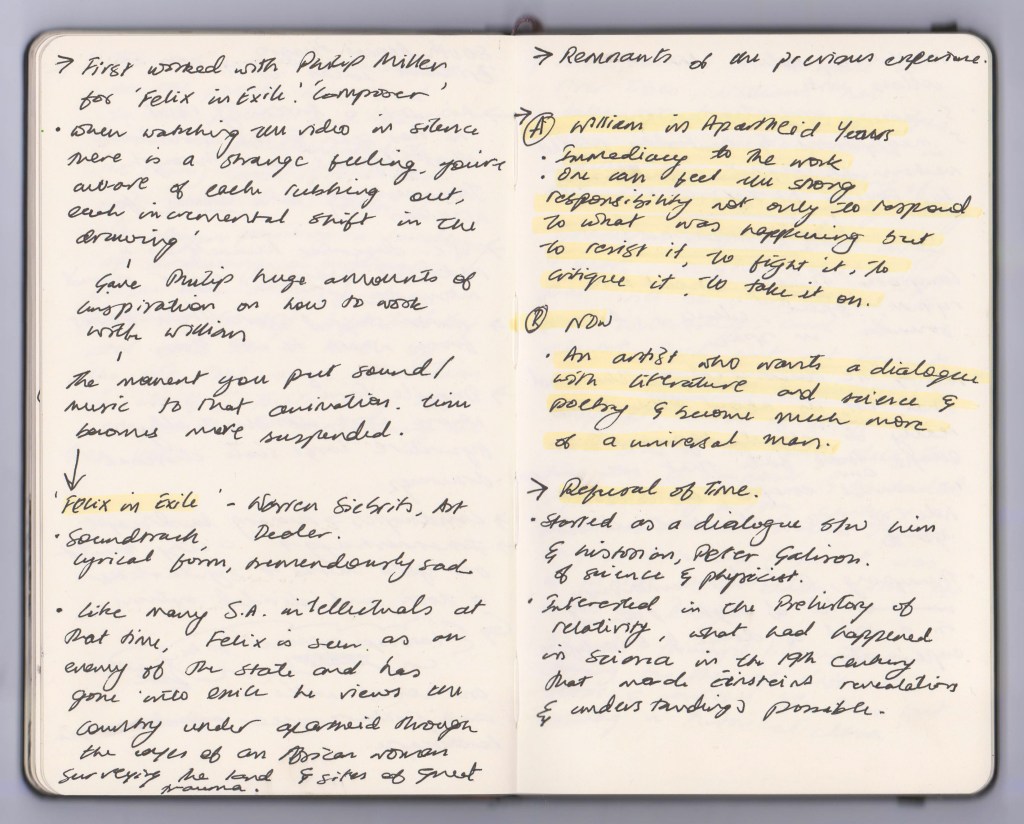 → First worked with Philip Miller
for 'Felix in Exile'. 'Composer'
• when watching the video in silence
there is a strange feeling, you're
aware of each rubbing out,
each incremental shift in the
drawing'
Gave Philip huge amounts of
inspiration on how to work
with william
the moment you put sound/
music to that animation. time
becomes more suspended.
'Felix in Exile' - Warren Siebrits, Art
• Soundtrack, Dealer.
lyrical form, tremendously sad
• Like many S.A. intellectuals at
that time, Felix is seen as an
enemy of the state and has
gone into exile he views the
country under apartheid through
the eyes of an African woman
surveying the land & sites of great
trauma.
→ Remnants of the previous experience.
→ (A) William in Apartheid Years
• Immediacy to the work
• One can feel the strong
responsibility not only to respond
to what was happening but
to resist it, to fight it, to
critique it, to take it on.
(B) NOW
• An artist who wants a dialogue
with literature and science &
poetry & become much more
of a universal man.
→ Refusal of Time.
• Started as a dialogue btw him
& historian, Peter Galison.
of science & physicist.
• Interested in the Prehistory of
relativity, what had happened
in science in the 19th century
that made Einsteins revelations
& understandings possible.